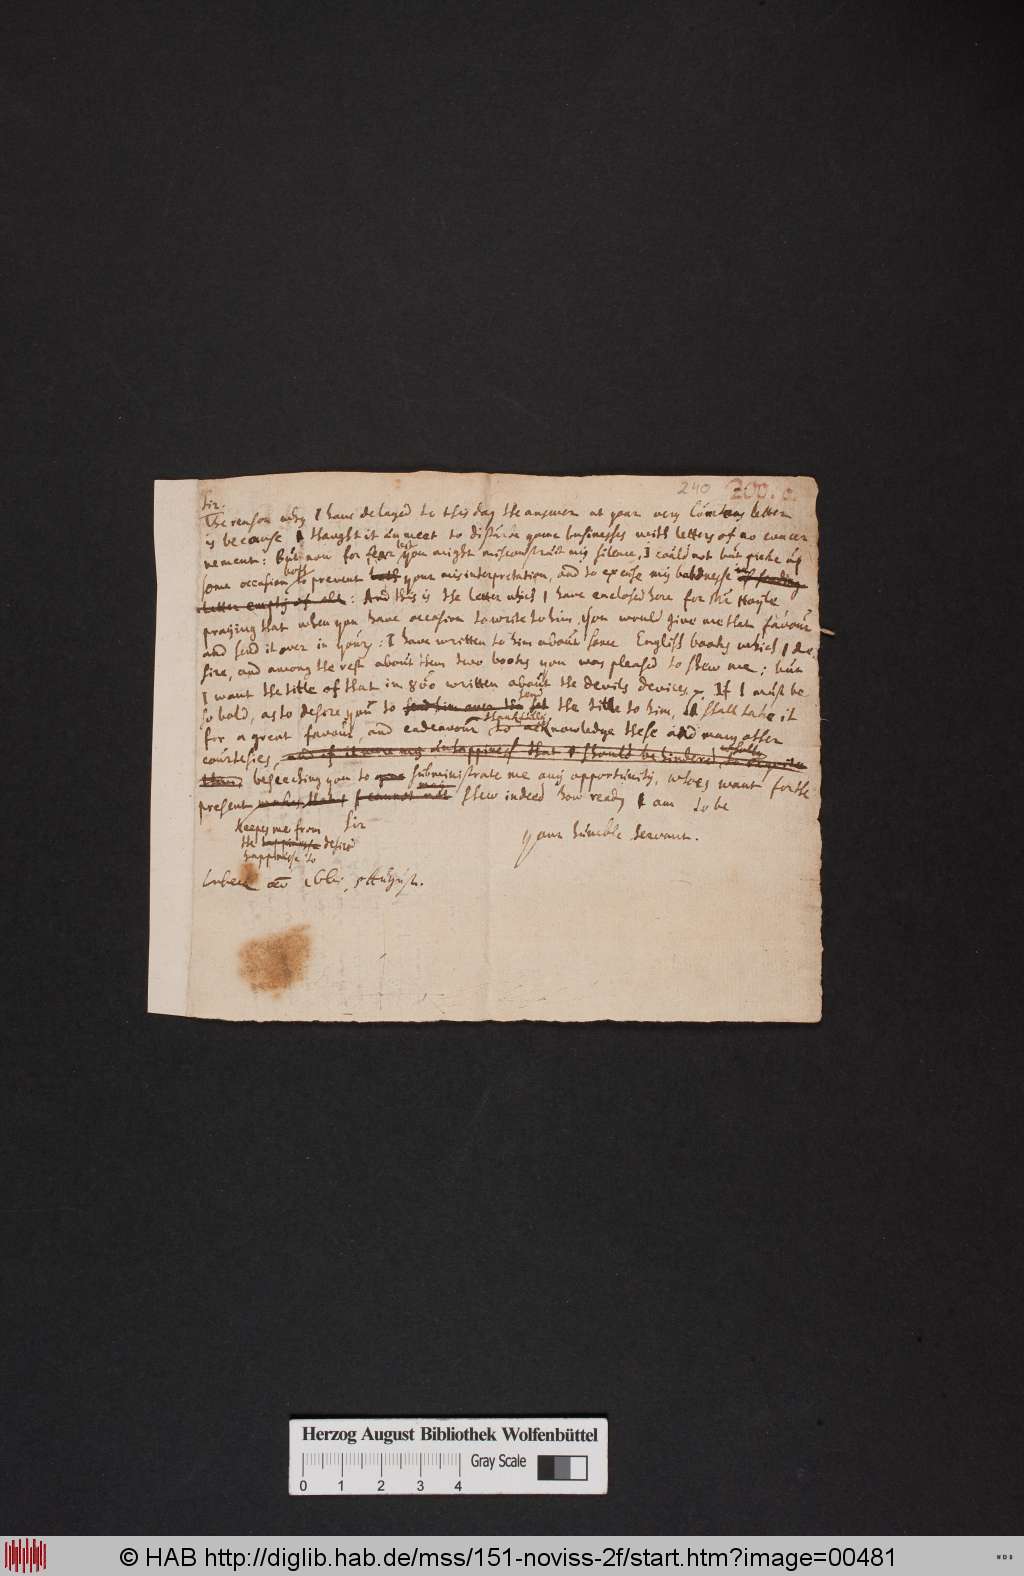 240 200.
Sir.
The reason why I have delayed to this day the answer at your very Courteous letter
is because I thought it unmeet to disturbe youre businesses with letters of no concer
nement: But now for fear lest you might misconstruct my silence, I could not but picke up
some occasion both to prevent both youre misinterpretation, and to excuse my boldnesse in of sending
letter empty of all: And this is the letter which I have enclosed here for Mr Hayle
praying that when you have occasion to write to him, you would give me that favour
and send it over in yours: I have written to him about some English books which I de
sire, and among the rest about them two books you was pleased to shew me; but
I want the title of that in 8vo written about the devils devices, If I must be
so bold, as to desire you to send him over the send the title to him, I shall take it
for a great favour, and endeavour thankfully to acknowledge these and many other
courtesies, and if it were my unhappinesse that I should be hindered, to requite
them, beseeching you to give subministrate me any opportunity, whoes want for the
present makes, that I cannot not may shew indeed how ready I am to be
Keepes me from Sir
the happinesse desired youre humble servant.
happinesse to
Lubeck
Herzog August Bibliothek Wolfenbüttel
Gray Scale
0 1 2 3 4
© HAB http://diglib.hab.de/mss/151-noviss-2f/start.htm?image=00481